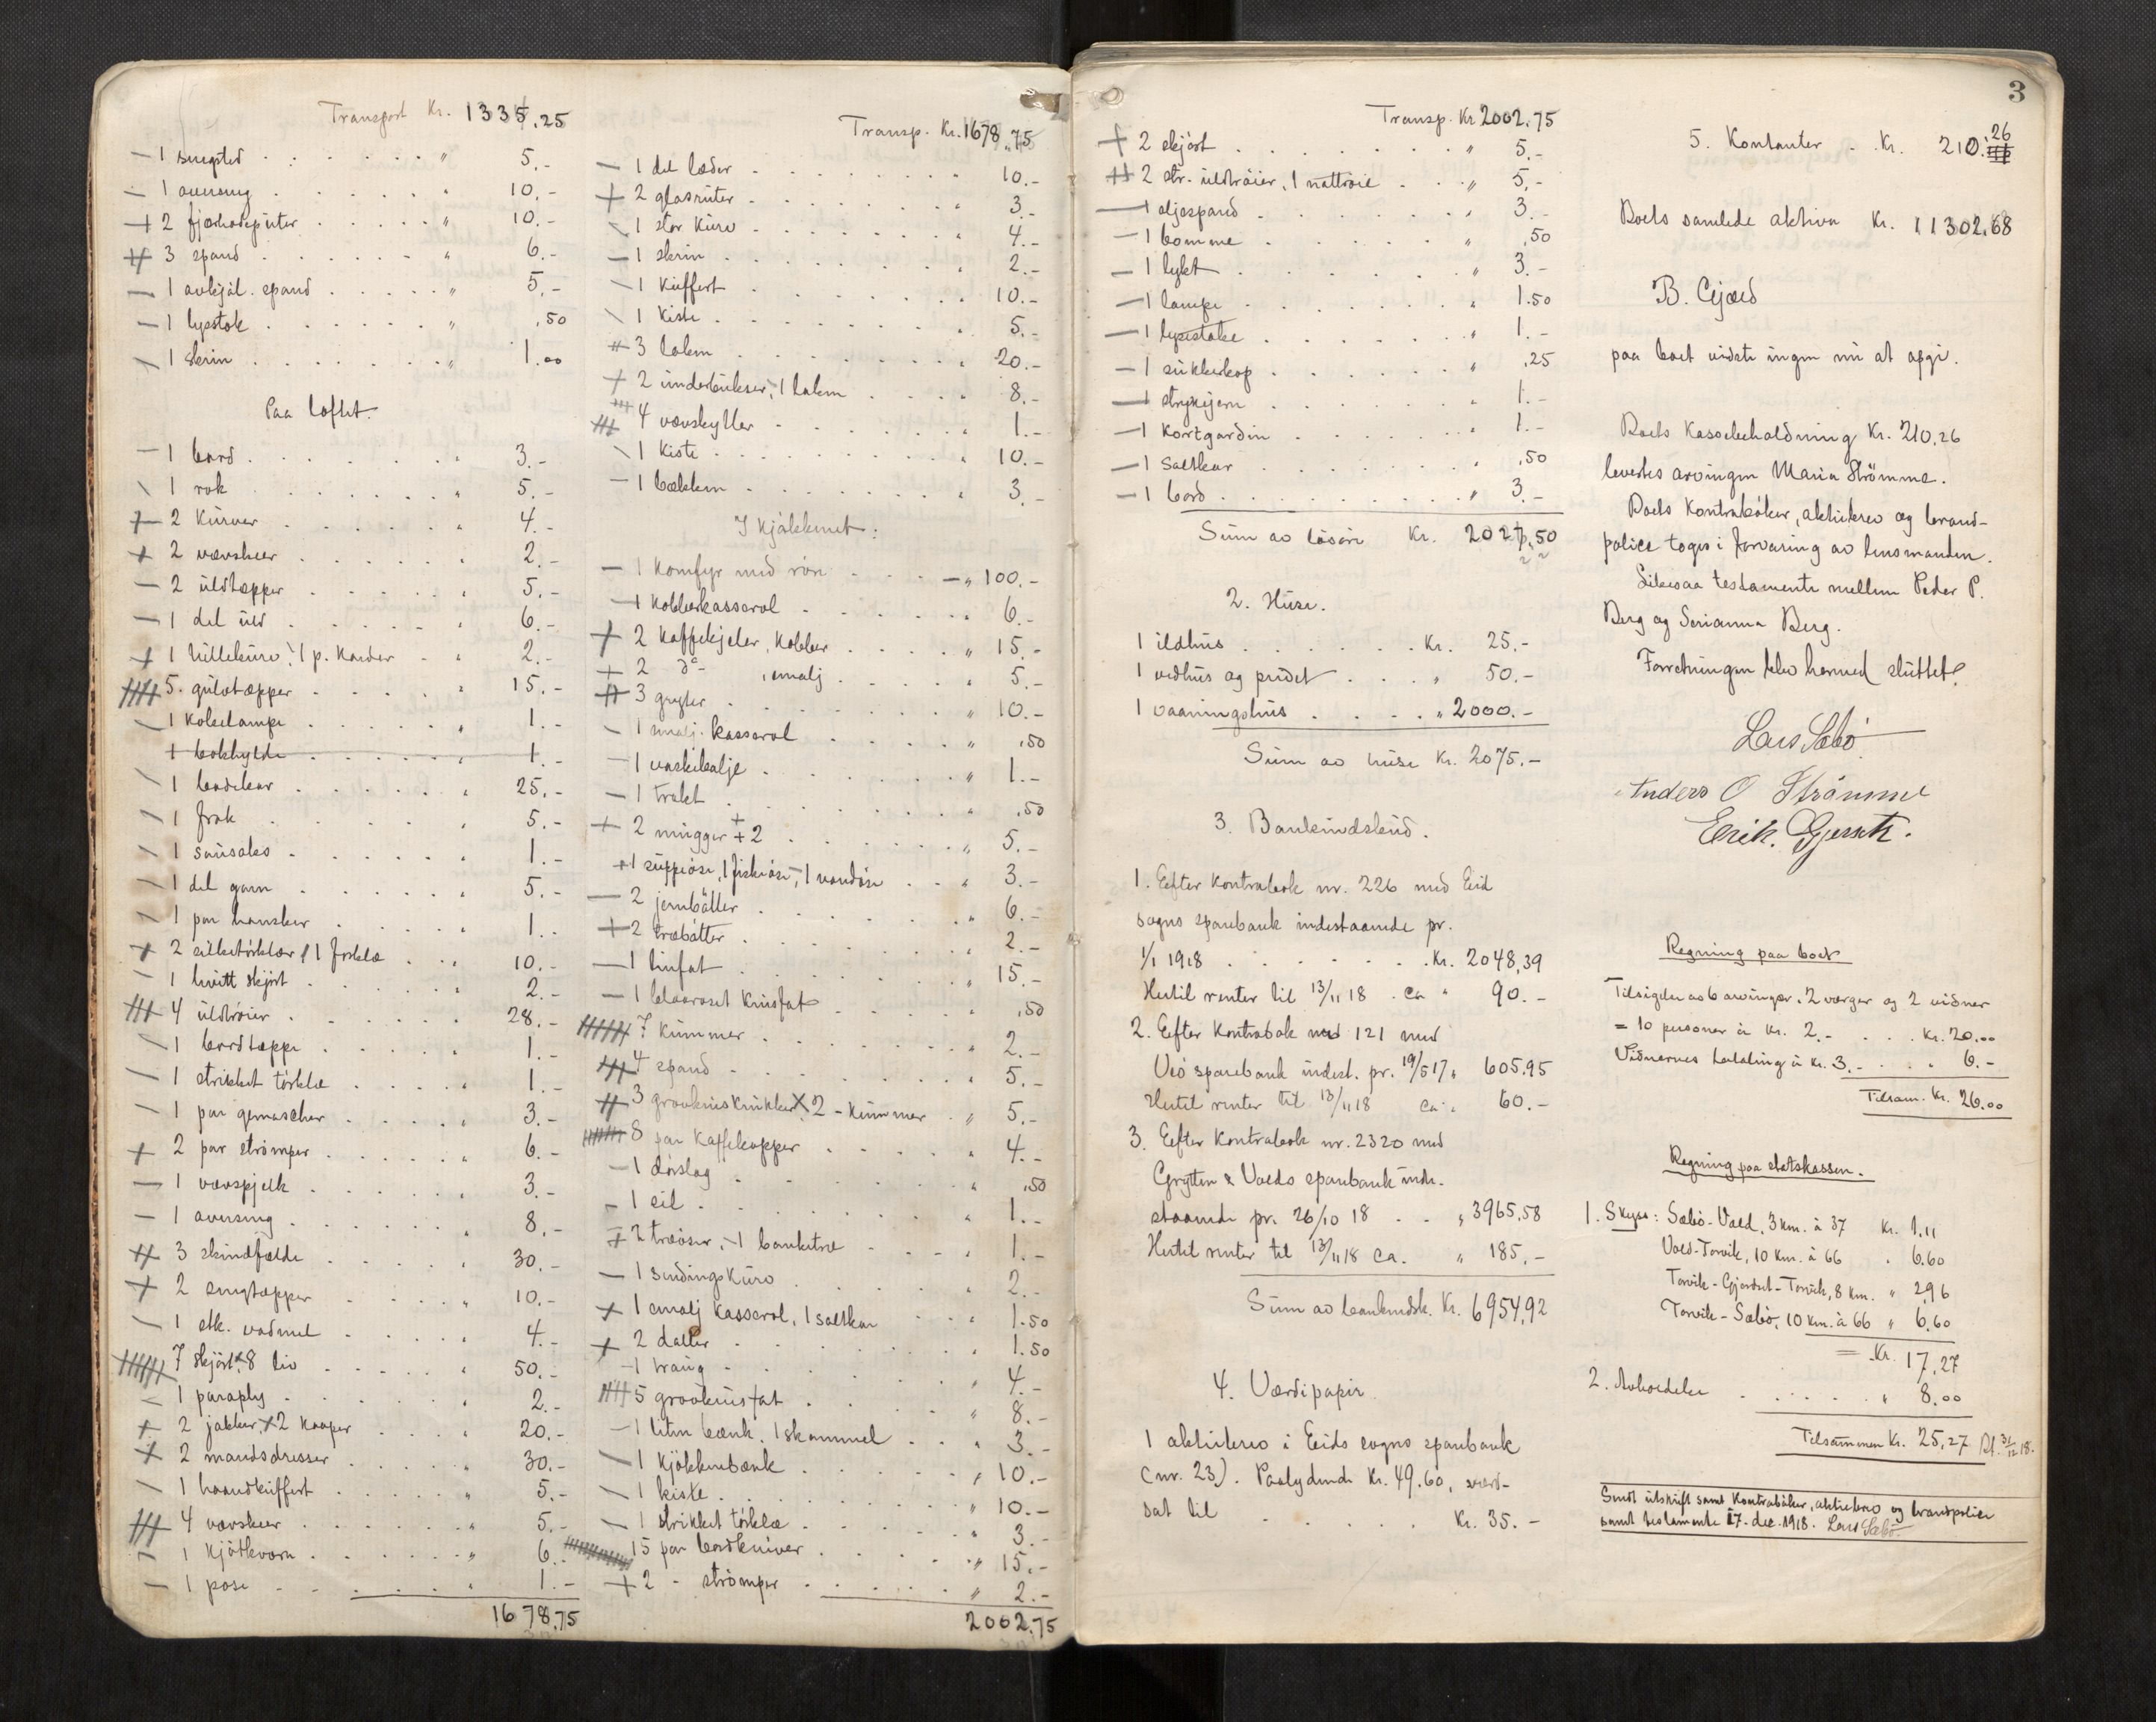 Transport Kr. 1335,25
1 sengsted " 5.-
1 aunsing 10.-
2 fjærhodeputer " 10.-
3 spand 6.-
1 avkjøl. spand " 5.-
1 lysestok " ,50
1 skrin " 1.00
Paa loftet.
1 bord 3.-
1 rok 5.-
2 kurver 4.-
2 vævskeer 2.-
2 uldtæpper 5.-
1 del uld 6.-
1 lillekurv, 1 p. karder 2.-
5 gulvtæpper 15.-
1 kokelampe 1.-
1 bokhylde 1.-
1 badekar 25.-
1 frak 5.-
1 sausaks 1.-
1 del garn 5.-
1 par hansker 1.-
2 silketørklær, 1 forklæ 10.-
1 hvitt skjørt 2.-
4 uldtrøier 28.-
1 bordtæppe 1.-
1 strikket tørklæ 1.-
1 par gamascher 3.-
2 par strømper 6.-
1 vævspjelk 3.-
1 aunsing 8.-
3 skindfælde 30.-
2 sengtæpper 10.-
1 stk. vadmel 4.-
7 skjørt, 8 liv 50.-
1 paraply 2.-
2 jakker, 2 kaaper 20.-
2 mandsdresser 30.-
1 haandkuffert 5.-
4 vævskeer 5.-
1 kjøtkvern 6.-
1 pose 1.-
1678,75
Transp. Kr. 1678,75
1 del læder 10.-
2 glasruter 3.-
1 stor kurv 4.-
1 skrin 2.-
1 kuffert 10.-
1 kiste 5.-
3 laken 20.-
2 underbukser, 1 laken 8.-
4 vævskytler 1.-
1 kiste 10.-
1 bækken 3.-
I kjøkkenet:
1 komfyr med rør " 100.-
1 kobberkasserol 6.-
2 kaffekjeler, kobber " 15.-
2 do , emalj 5.-
3 gryter " 10.-
1 emalj. kasserol " ,50
1 vaskebalje " 1.-
1 trakt ,50
2 mugger + 2 " 5.-
1 suppeøse, 1 fiskeøse, 1 vandøse 3.-
2 jernbøtter 6.-
2 træbøtter 2.-
1 linfat 15.-
1 blaaroset krusfat ,50
7 kummer 2.-
4 spand 5.-
3 graakruskrukker, 2 - kummer " 5.-
8 par kaffekopper 4.-
1 dørslag ,50
1 sil 1.-
2 træøser, 1 banketræ 1.-
1 sendingskurv 2.-
1 emalj kasserol, 1 saltkar 1.50
2 daller 1.50
1 traug 4.-
5 graakrusfat " 8.-
1 liten bænk, 1 skammel 3.-
1 kjøkkenbænk 10.-
1 kiste 10.-
1 strikket tørklæ 3.-
15 par bordkniver " 15.-
2 - strømper " 2.-
2002.75
3
Transp. Kr 2002.75
2 skjørt " 5.-
2 str. uldtrøier, 1 nattrøie " 5.-
1 oljespand 3.-
1 tomme " ,50
1 lykt " 3.-
1 lampe 1.50
1 lysestake " 1.-
1 sukkerkop ,25
1 strykejern 1.-
1 kortgardin 1.-
1 saltkar ,50
1 bord " 3.-
Sum av løsøre Kr. 2027,50
2. Huse.
1 ildhus Kr. 25.-
1 vedhus og privet " 50.-
1 vaaningshus " 2000.-
Sum av huse Kr. 2075.-
3. Bankindskud.
1. Efter kontrabok nr. 226 med Eid
sogns sparebank indestaaende pr.
1/1 1918 Kr. 2048,39
Hertil renter til 13/11 18 ca " 90.-
2. Efter kontrabok nr 121 med
Veø sparebank indest. pr. 19/5 17 " 605.95
Hertil renter til 13/11 18 ca. " 60.-
3. Efter kontrabok nr. 2320 med
Grytten & Volds sparebank inde-
staaende pr. 26/10 18 " 3965,58
Hertil renter til 13/11 18 ca. " 185.-
Sum av bankindsk. Kr. 6954,92
4. Værdipapir.
1 aktiebrev i Eids sogns sparebank
(nr. 23). Paalydende Kr. 49.60, værd-
sat til Kr. 35.-
5. Kontanter Kr. 210.26
Boets samlede aktiva Kr. 11302,68
B. Gjæld
paa boet vidste ingen nu at opgi.
Boets kassebeholdning Kr. 210,26
levertes arvingen Maria Strømme.
Boets kontrabøker, aktiebrev og brand-
police toges i forvaring av lensmanden.
Likesaa testamente mellem Peder P.
Berg og Serianna Berg.
Forretningen blev hermed sluttet.
Lars Sæbö
Anders O Strömme
Erik. Gjerseth.
Regning paa boet
Tilsigelse av 6 arvinger, 2 værger og 2 vidner
= 10 personer à Kr. 2.- Kr. 20.00
Vidnernes betaling à Kr. 3.- 6.-
Tilsam. Kr. 26.00
Regning paa statskassen.
1. Skyss: Sæbö-Vold, 3 km. à 37 Kr. 1,11
Vold-Torvik, 10 km. à 66 " 6.60
Torvik-Gjerdset-Torvik, 8 km. " 2,96
Torvik-Sæbö, 10 km. à 66 " 6,60
= Kr. 17,27
2. Avhoedelse " 8.00
Tilsammen Kr. 25,27 Bt. 31/12 18.
Sendt utskrift samt kontrabøker, aktiebrev og brandpolice
samt testamente 17. dec. 1918. Lars Sæbö